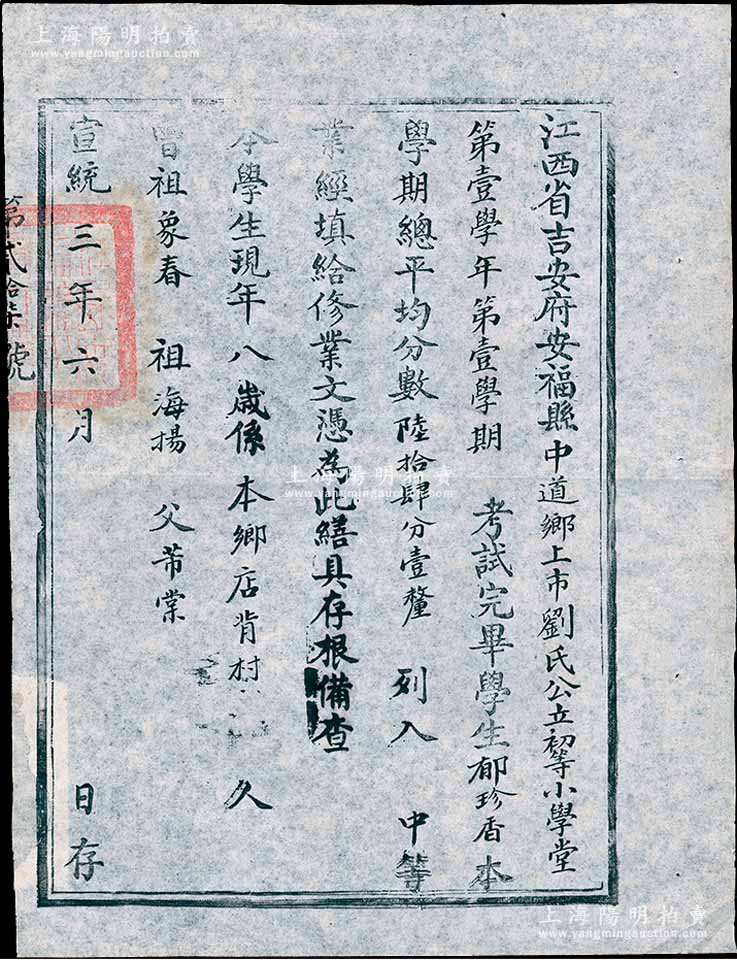 上海陽明拍賣
www.yangmingauction.com
江西省吉安府安福縣中道鄉上市劉氏公立初等小學堂
第壹學年第壹學期 考試完畢學生郁珍香本
學期總平均分數陸拾肆分壹釐 列入 中等
業經填給修業文憑為此繕具存根備查
本學生現年八歲係本鄉店背村 久
曾祖象春 祖海揚 父芾棠
宣統三年六月 日存
第貳拾柒號
上海陽明拍賣
www.yangmingauction.com
上海陽明拍賣
www.yangmingauction.com